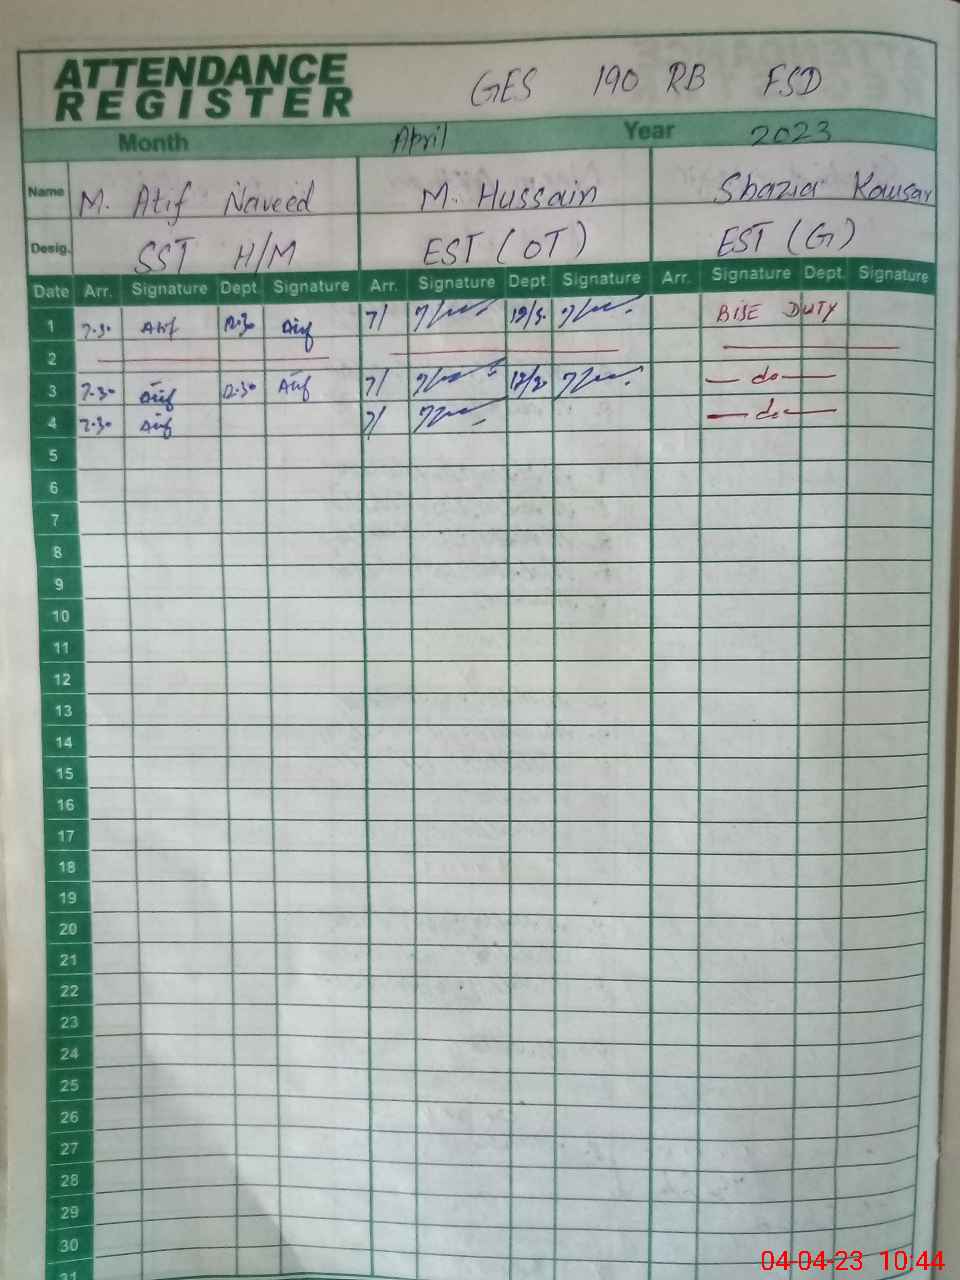 ATTENDANCE
REGISTER
GES 190 RB FSD
Month April Year 2023
Name M. Atif Naveed M. Hussain Shazia Kausar
Desig. SST H/M EST (OT) EST (G)
Date Arr. Signature Dept. Signature Arr. Signature Dept. Signature Arr. Signature Dept. Signature
1 7.30 Atif 12.30 Atif 7/ BISE DUTY
2
3 7.30 Atif 12.30 Atif 7/ — do —
4 7.30 Atif 7/ — do —
5
6
7
8
9
10
11
12
13
14
15
16
17
18
19
20
21
22
23
24
25
26
27
28
29
30
31
04-04-23 10:44